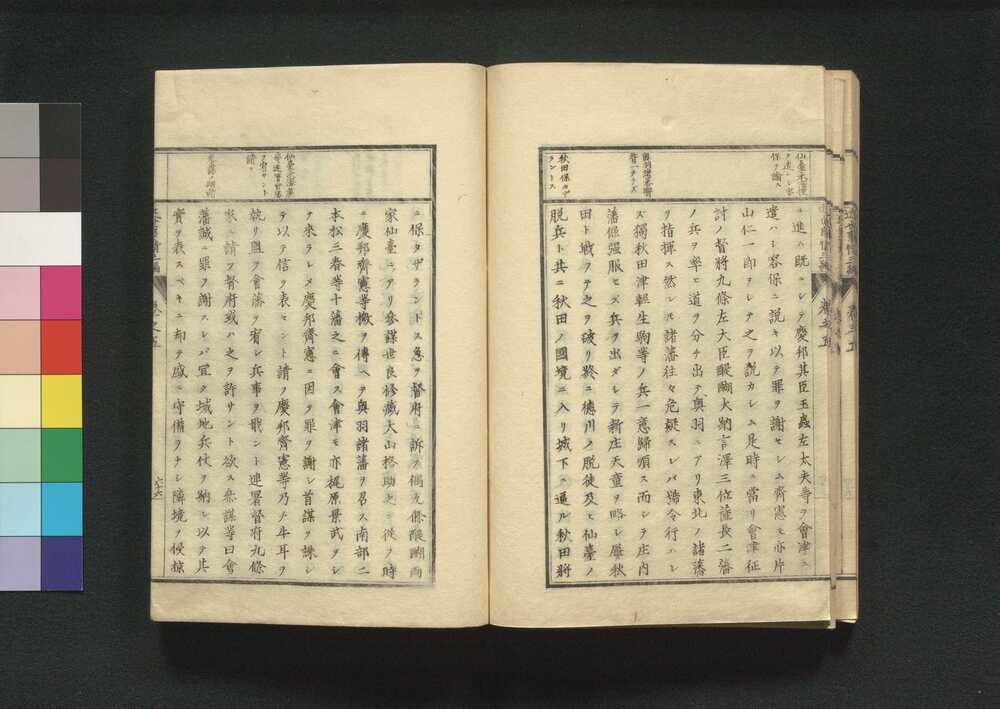 仙臺米澤使
ヲ遣ハシ容
保ヲ諭ス
奧羽諸藩嚮
背一ナラズ
秋田保タザ
ラントス
ニ進ム既ニシテ慶邦其臣玉蟲左太夫等ヲ會津ニ
遣ハシ容保ニ說キ以テ罪ヲ謝セシム齊憲モ亦片
山仁一郎ヲシテ之ヲ說カシム是時ニ當リ會津征
討ノ督將九條左大臣醍醐大納言澤三位薩長二藩
ノ兵ヲ率ヒ道ヲ分チ出テ奧羽ニアリ東北ノ諸藩
ヲ指揮ス然レモ諸藩往々危疑スレバ號令行ハレ
ズ獨秋田津輕生駒等ノ兵一意歸順ス而シテ庄內
藩倔强服セズ兵ヲ出ダシテ新庄天童ヲ略シ屢秋
田ト戰テ之ヲ破リ終ニ德川ノ脫徒及ヒ仙臺ノ
脫兵ト共ニ秋田ノ國境ニ入リ城下ニ逼ル秋田將
仙臺米澤會
津連署會藩
ヲ宥サント
請フ
ニ保タザラントス急ヲ督府ニ訴フ偶九條醍醐兩
家仙臺ニアリ參謀世良修藏大山格助之ニ從フ時
ニ慶邦齊憲等檄ヲ傳ヘテ奧羽諸藩ヲ召ス南部二
本松三春等十藩之ニ會ス會津モ亦梶原景武ヲシ
テ來ラシメ慶邦齊憲ニ因テ罪ヲ謝シ首謀ヲ誅シ
テ以テ信ヲ表セント請フ慶邦齊憲等乃チ牛耳ヲ
執リ盟ヲ會藩ヲ宥シ兵事ヲ戢ント連署督府九條
家ニ請フ督府或ハ之ヲ許サント欲ス參謀等曰會
藩誠ニ罪ヲ謝スレバ宜ク城地兵仗ヲ納レ以テ其
實ヲ表スベキニ却テ盛ニ守備ヲナシ隣境ヲ侵掠
卷之五
六十六